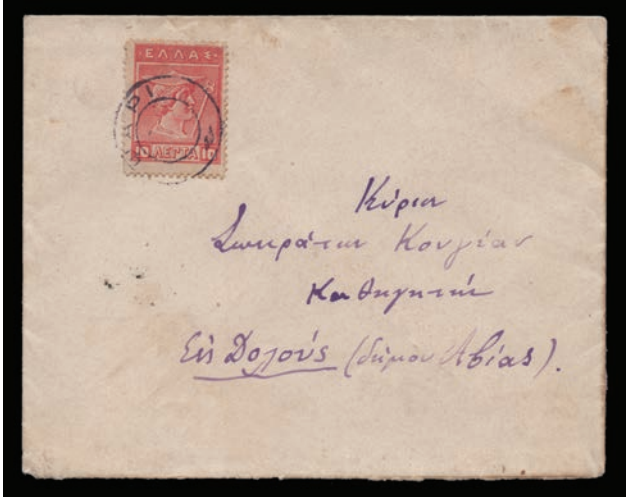 ΕΛΛΑΣ
10 ΛΕΠΤΑ 10
Κύριον
Σωκράτην Κουγέαν
Καθηγητήν
Εἰς Δολούς (δήμου Ἀβίας).